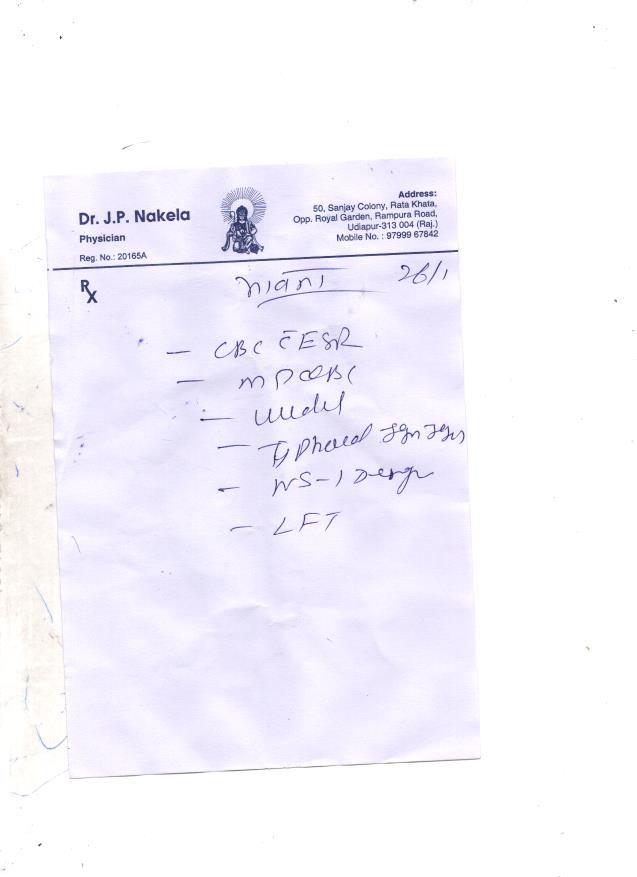 Dr. J.P. Nakela
Physician
Reg. No.: 20165A
Address:
50, Sanjay Colony, Rata Khata,
Opp. Royal Garden, Rampura Road,
Udiapur-313 004 (Raj.)
Mobile No. : 97999 67842
Rx
26/1
- CBC c̄ ESR
- MP QBC
- Widal
- Typhoid IgM IgG
- NS-1 Dengu
- LFT